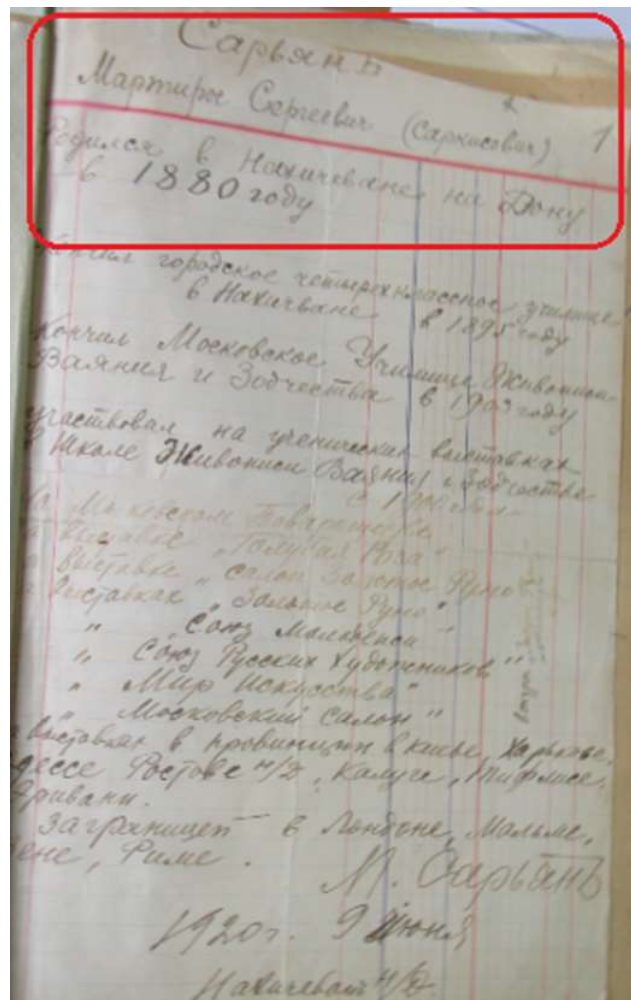 Сарьянъ
Мартирос Сергеевич (Саркисович) 1
Родился в Нахичеване на Дону
в 1880 году
Кончил городское четырехклассное училище
в Нахичване в 1895 году
Кончил Московское Училище Живописи
Ваяния и Зодчества в 1903 году
участвовал на ученических выставках
Школе Живописи Ваяния и Зодчества
с 1900
Московском Товариществе
выставке „Голубая Роза"
выставке „Салон Золотое Руно"
выставках „Золотое Руно"
" „Союз Молодежи"
" „Союз Русских Художников"
" „Мир Искусства"
" „Московский Салон"
выставках в провинции в Киеве, Харькове,
Одессе Ростове н/Д, Калуге, Тифлисе,
Эривани.
заграницей — в Лондоне, Мальме,
Риме.
М. Сарьянъ
1920 г. 9 Июня
Нахичевань н/Д